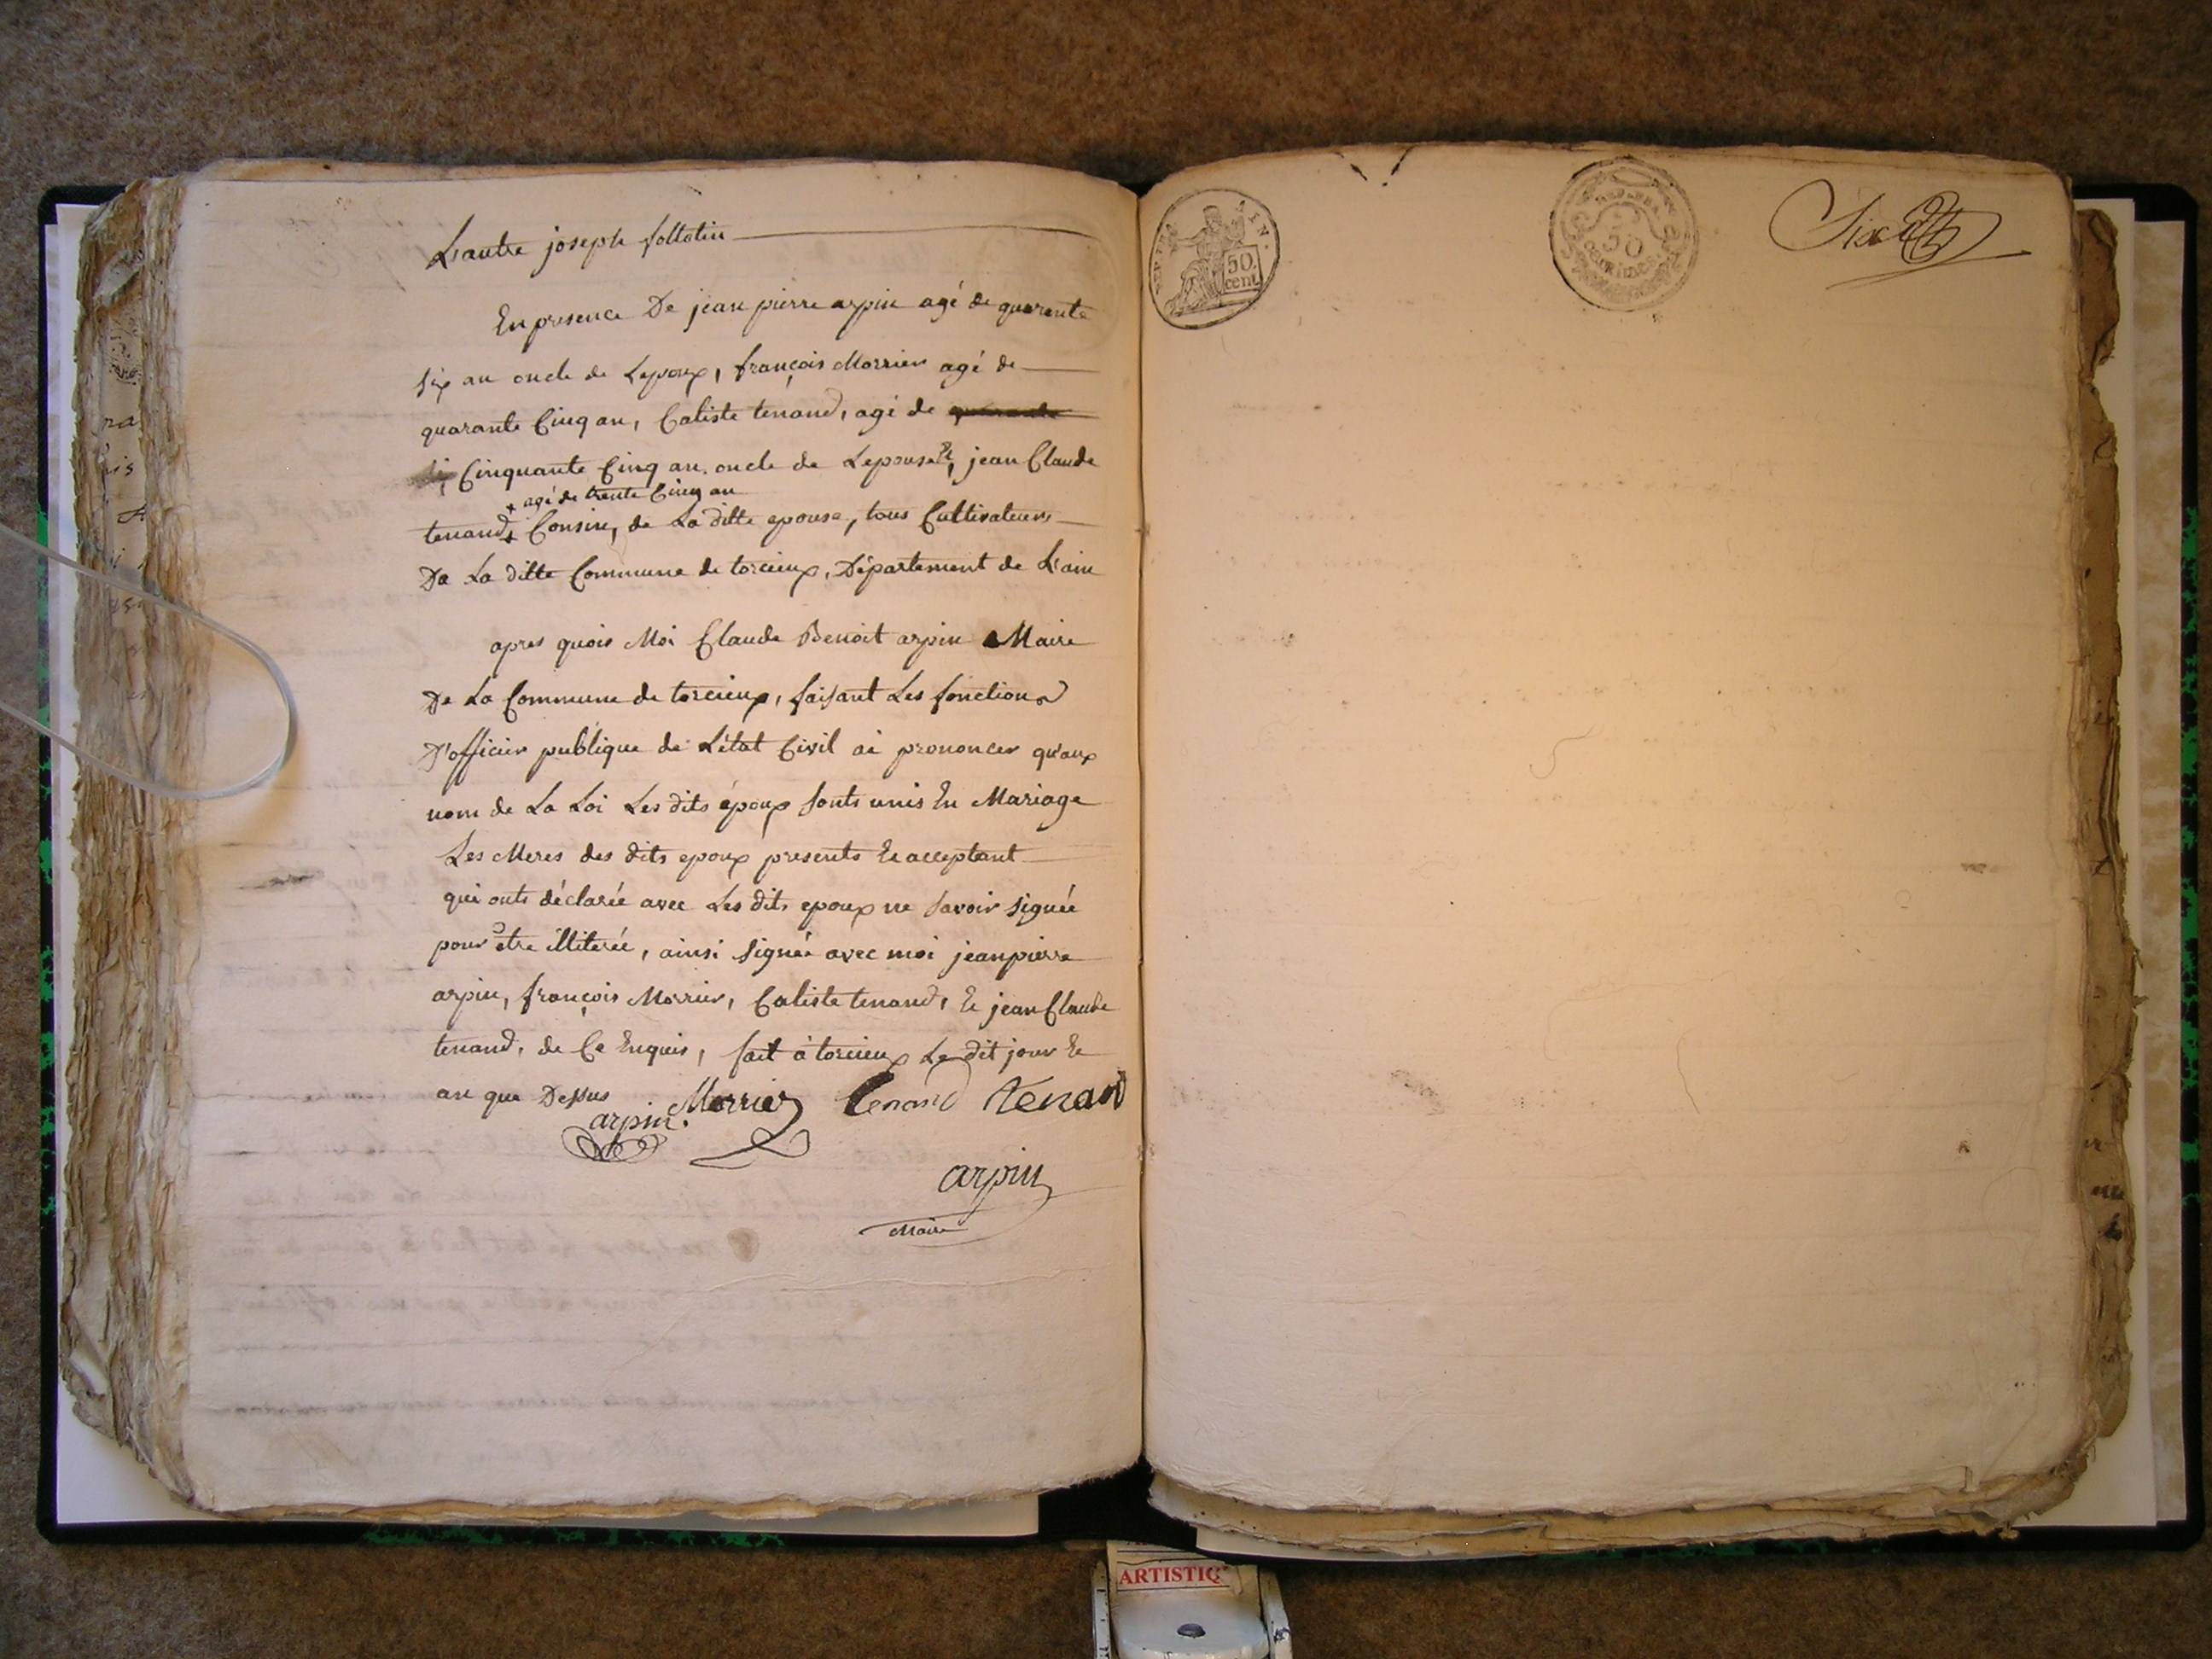 L'autre joseph follatin
En presence De jean pierre arpin agé de quarente
six an oncle de Lepoux, françois Morrier agé de
quarante Cinq an, Caliste tenand, agé de
Cinquante Cinq an. oncle de Lepouse Et, jean Claude
+ agé de trente Cinq an
tenand + Consin, de La ditte epouse, tous Cultivateurs
De La ditte Commune de torcieux, Département de L'ain
apres quois Moi Claude Benoit arpin Maire
De La Commune de torcieux, faisant Les fonctions
D'officier publique de L'état Civil ai prononcer qu'aux
nom de La Loi Les dits époux sonts unis En Mariage
Les Meres des dits epoux presents Et acceptant
qui onts déclarée avec Les dits epoux ne savoir signée
pour etre illiterée, ainsi signée avec moi jeanpierre
arpin, françois Morrier, Caliste tenand, Et jean Claude
tenand, de Ce Enquis, fait à torcieux Le dit jour Et
an que Dessus
arpin. Morrier tenand tenand
arpin
Maire
AIN.
50.
cent
REP. FRA.
50
centimes
Six
ARTISTIQ